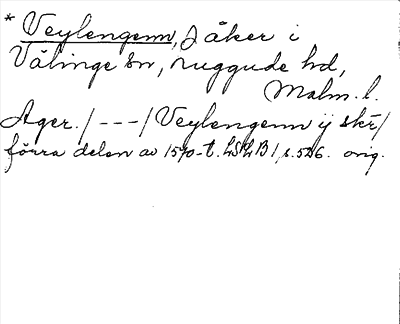 * Veylengenn, åker i
Välinge sn, Luggude hd,
Malm. l.
Ager. /---/ Veylengenn ij skr/
förra delen av 1570-t. LSkLB 1, s. 526. orig.